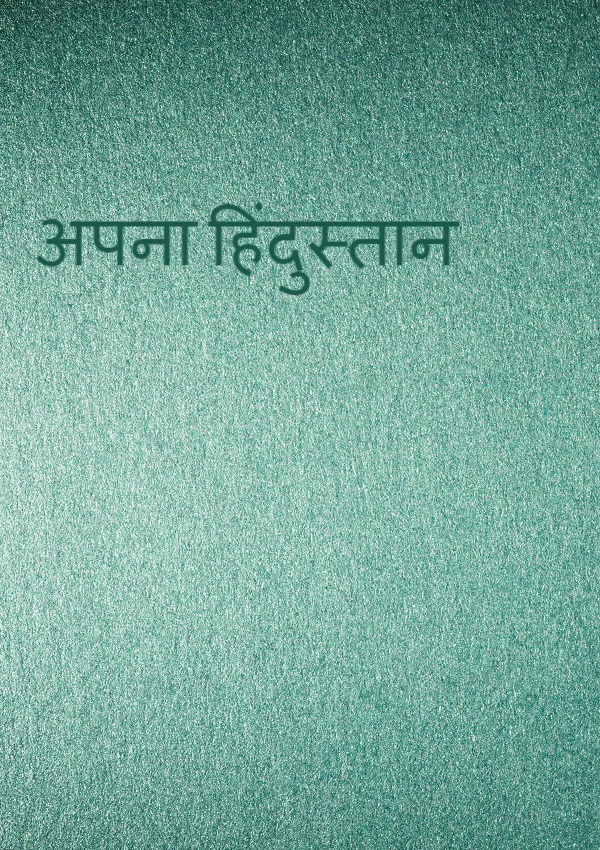 अपना हिंदुस्तान